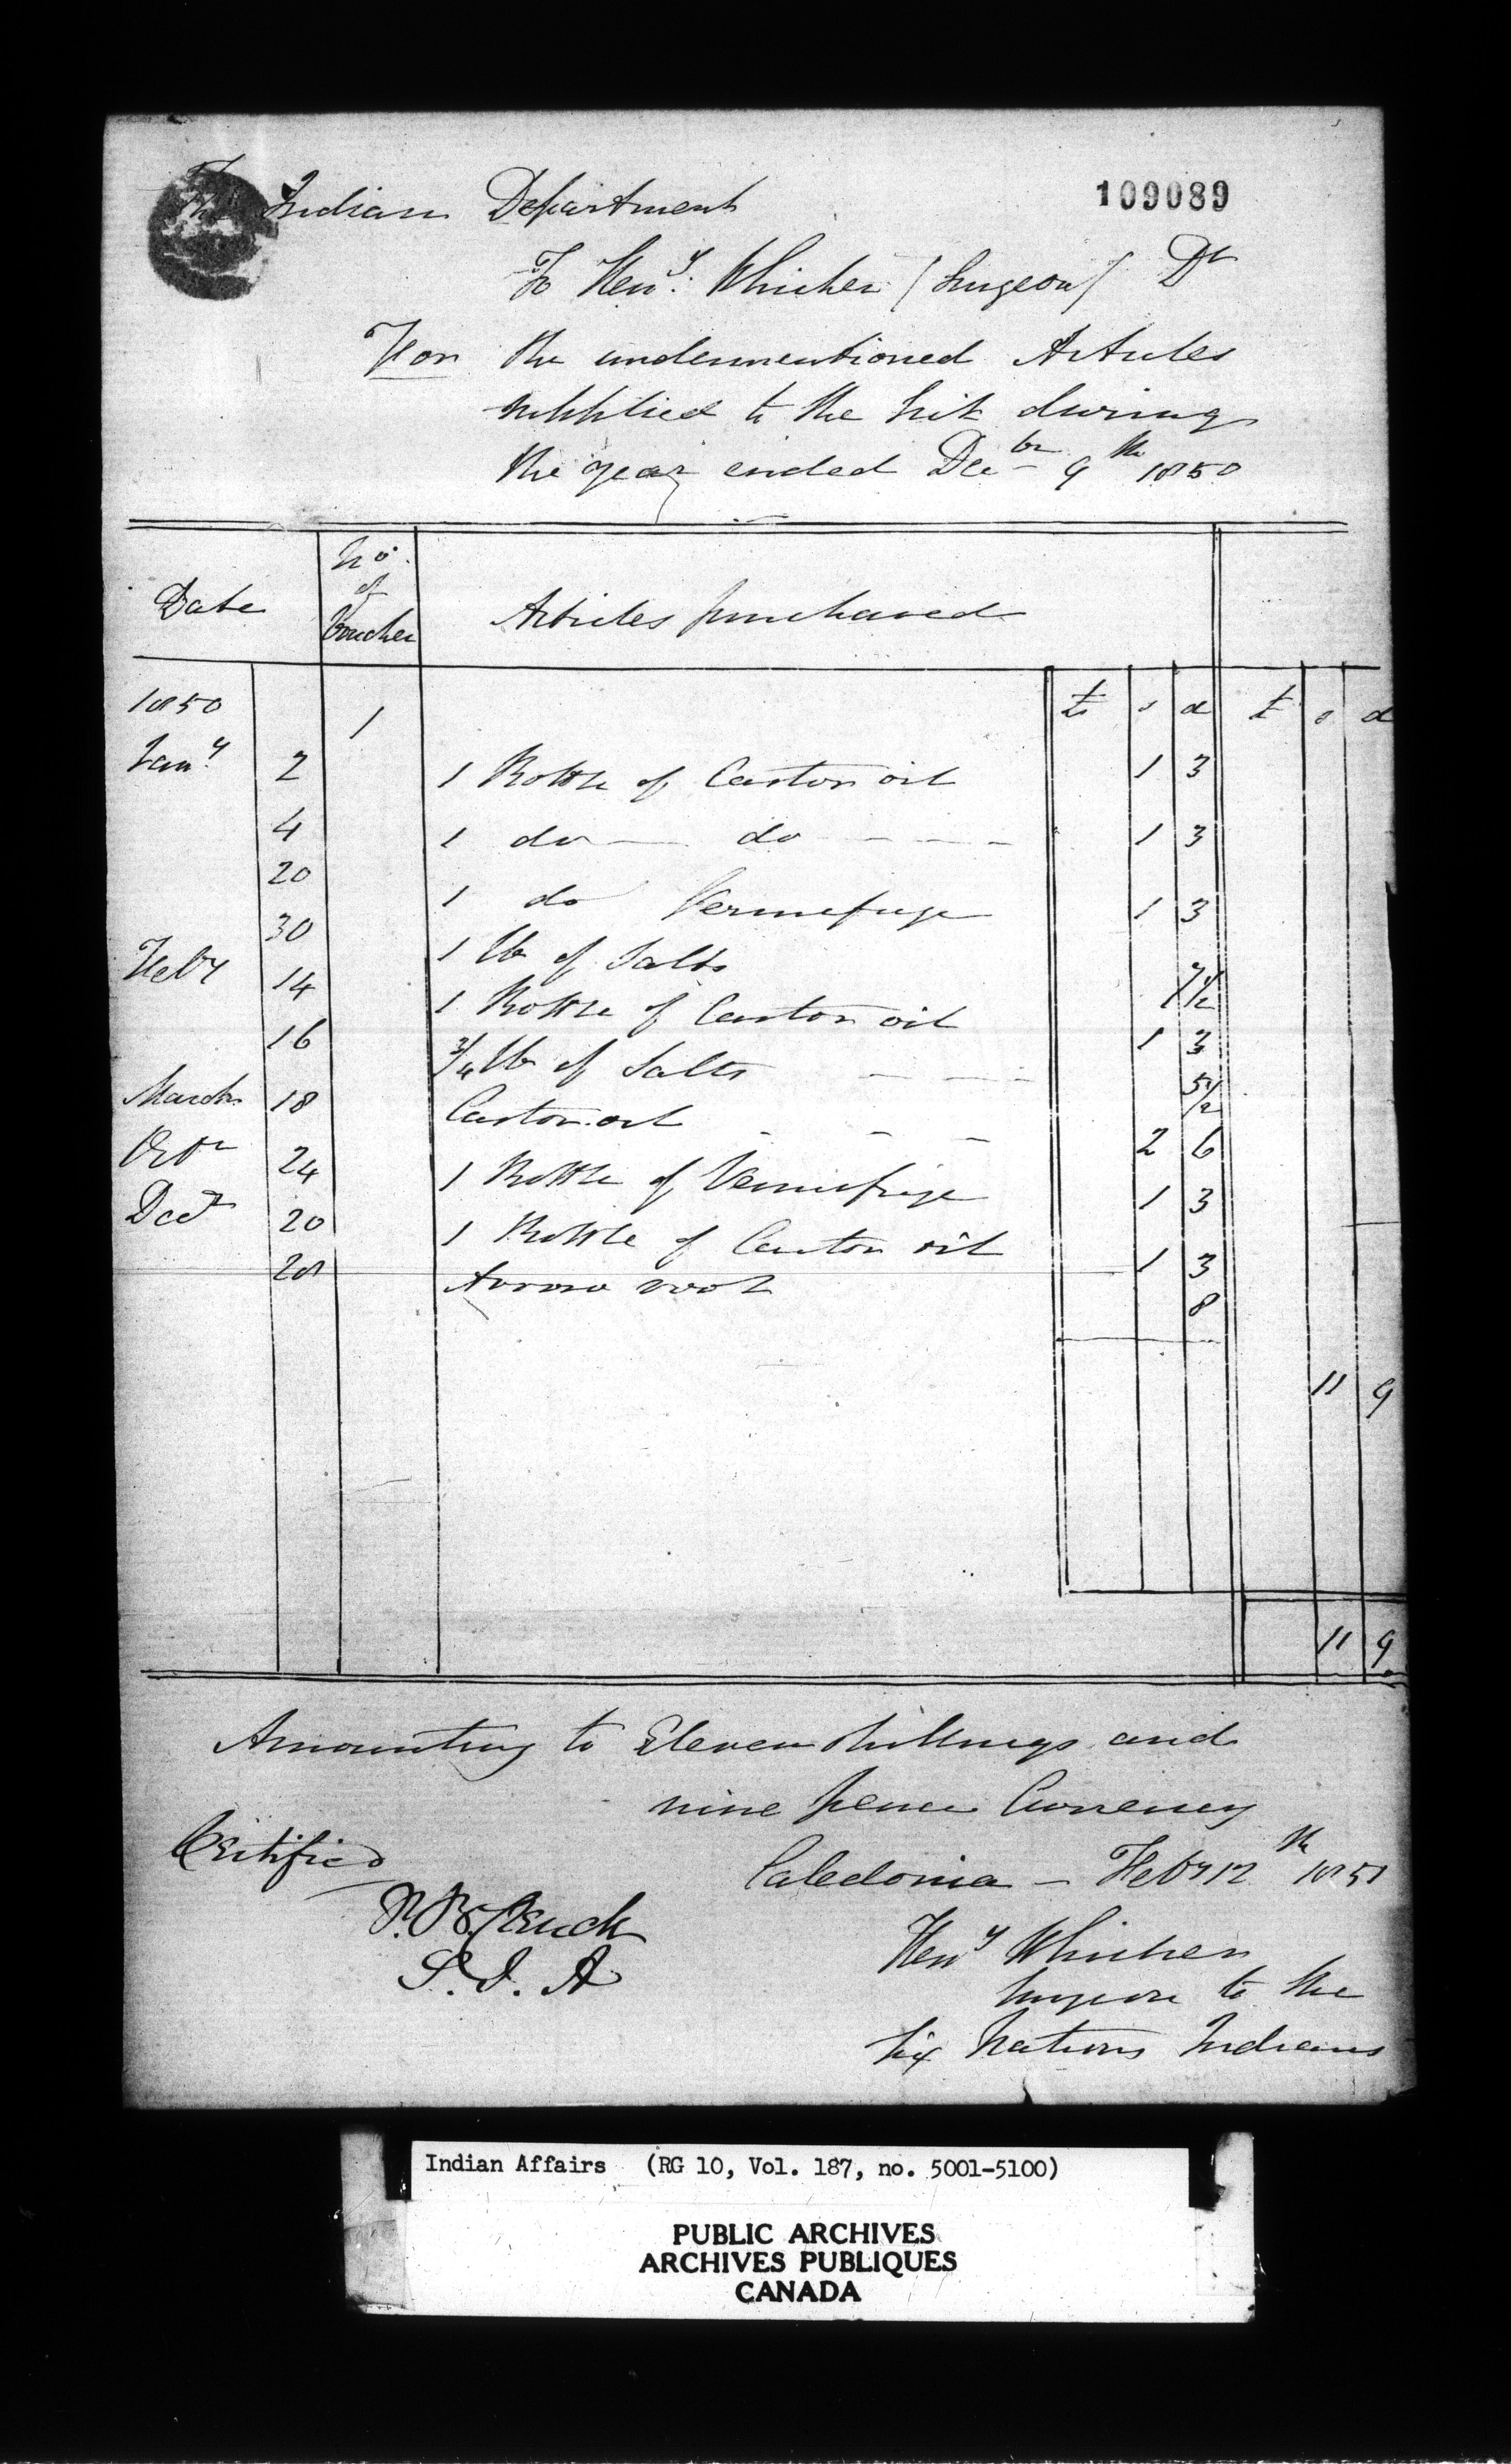 109089
The Indian Department
To Heny. Whicher (Surgeon) Dr
For the undermentioned Articles
supplied to the Sick during
the year ended Decbr 9th 1850
Date No. of Voucher Articles purchased
1850 1 £ s d £ s d
Jany. 2 1 Bottle of Castor oil 1 3
4 1 do — do - - - - 1 3
20 1 do Vermefuge 1 3
30 1 lb of Salts 7 1/2
Feby 14 1 Bottle of Castor oil 1 3
16 3/4 lb of Salts - - - 5 1/2
March 18 Castor oil - - - 2 6
Octr 24 1 Bottle of Vermifuge 1 3
Decr 20 1 Bottle of Castor oil 1 3
28 Arrow root 8
11 9
11 9
Amounting to Eleven shillings and
nine pence Currency
Certified
Caledonia — Feby 12th 1851
Heny Whicher
Surgeon to the
Six Nations Indians
S. I. A
Indian Affairs (RG 10, Vol. 187, no. 5001-5100)
PUBLIC ARCHIVES
ARCHIVES PUBLIQUES
CANADA